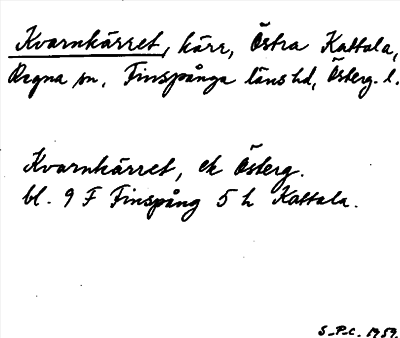 Kvarnkärret, kärr, Östra Kattala,
Regna sn, Finspånga läns hd, Österg. l.
Kvarnkärret, ek Österg.
bl. 9 F Finspång 5 h Kattala.
S-P-C. 1959.